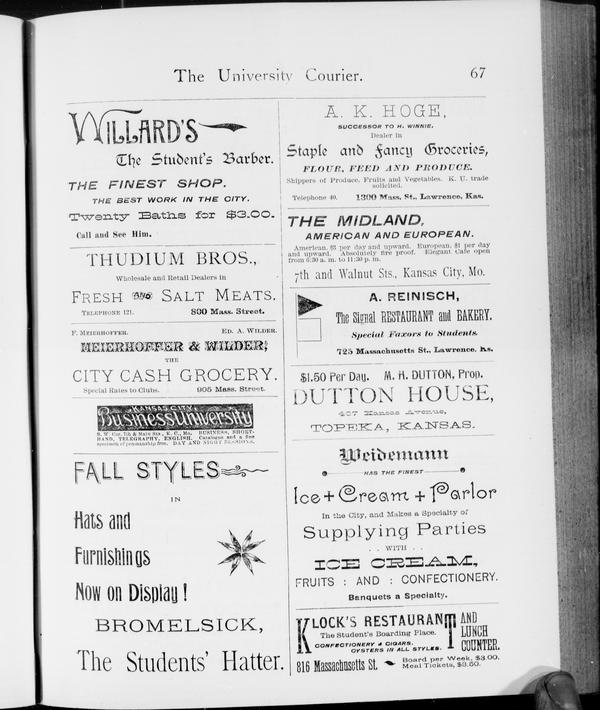 The University Courier.
67
WILLARD'S
The Student's Barber.
THE FINEST SHOP.
THE BEST WORK IN THE CITY.
Twenty Baths for $3.00.
Call and See Him.
THUDIUM BROS.,
Wholesale and Retail Dealers in
FRESH AND SALT MEATS.
TELEPHONE 121. 800 Mass. Street.
F. MEIERHOFFER. ED. A. WILDER.
MEIERHOFFER & WILDER,
THE
CITY CASH GROCERY.
Special Rates to Clubs. 905 Mass. Street.
KANSAS CITY
Business University
N. W. Cor. 7th & Main Sts., K. C., Mo. BUSINESS, SHORT-
HAND, TELEGRAPHY, ENGLISH. Catalogue and a fine
specimen of penmanship free. DAY AND NIGHT SESSIONS.
FALL STYLES
IN
Hats and
Furnishings
Now on Display!
BROMELSICK,
The Students' Hatter.
A. K. HOGE,
SUCCESSOR TO H. WINNIE.
Dealer in
Staple and Fancy Groceries,
FLOUR, FEED AND PRODUCE.
Shippers of Produce, Fruits and Vegetables. K. U. trade
solicited.
Telephone 40. 1300 Mass. St., Lawrence, Kas.
THE MIDLAND,
AMERICAN AND EUROPEAN.
American, $3 per day and upward. European, $1 per day
and upward. Absolutely fire proof. Elegant Cafe open
from 6:30 a. m. to 11:30 p. m.
7th and Walnut Sts., Kansas City, Mo.
A. REINISCH,
The Signal RESTAURANT and BAKERY.
Special Favors to Students.
725 Massachusetts St., Lawrence, Ks.
$1.50 Per Day. M. H. DUTTON, Prop.
DUTTON HOUSE,
407 Kansas Avenue,
TOPEKA, KANSAS.
Weidemann
HAS THE FINEST
Ice + Cream + Parlor
In the City, and Makes a Specialty of
Supplying Parties
. . WITH . .
ICE CREAM,
FRUITS : AND : CONFECTIONERY.
Banquets a Specialty.
KLOCK'S RESTAURANT AND LUNCH COUNTER.
The Student's Boarding Place.
CONFECTIONERY & CIGARS.
OYSTERS IN ALL STYLES.
816 Massachusetts St. Board per Week, $3.00.
Meal Tickets, $3.50.